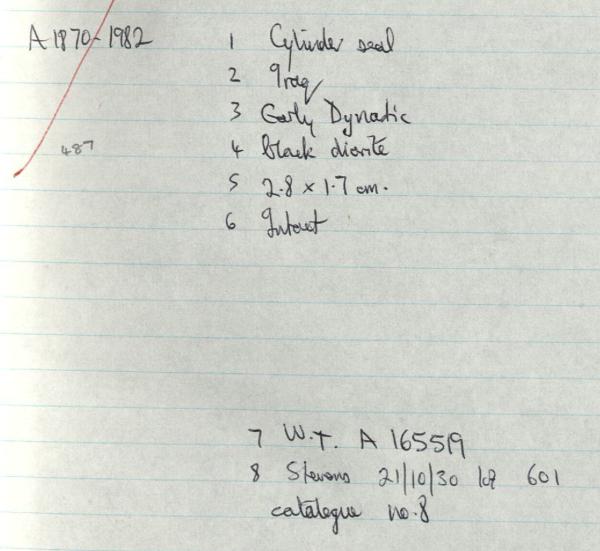 A1870-1982
1 Cylinder seal
2 Iraq
3 Early Dynastic
487
4 black diorite
5 2.8 x 1.7 cm.
6 Intact
7 W.T. A 165519
8 Stevens 21/10/30 lot 601
catalogue no.8